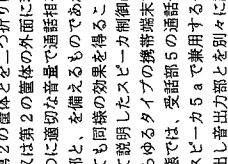 第2の筐体とを二つ折り
又は第2の筐体の外面に
つに適切な音量で通話相
部と、を備えるものであ
ても同様の効果を得るこ
て説明したスピーカ制御
わゆるタイプの携帯端末
態では、受話部5の通話
スピーカ5aで兼用する
出し音出力部とを別々に